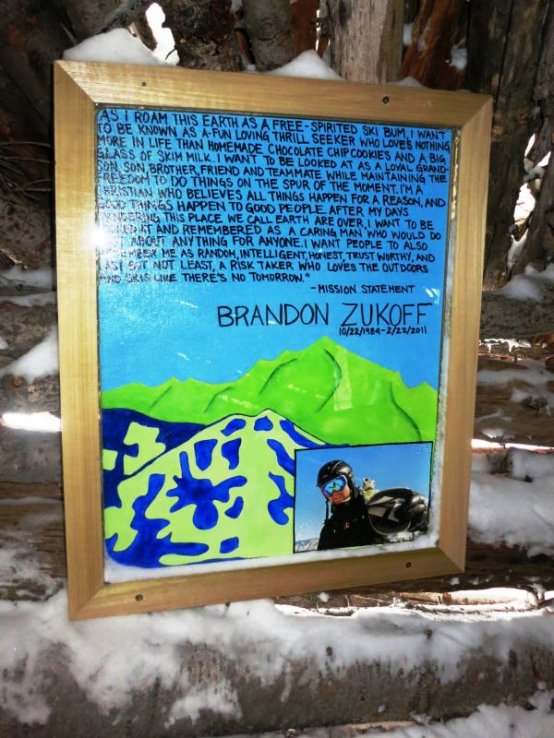 AS I ROAM THIS EARTH AS A FREE-SPIRITED SKI BUM, I WANT
TO BE KNOWN AS A-FUN LOVING THRILL SEEKER WHO LOVES NOTHING
MORE IN LIFE THAN HOMEMADE CHOCOLATE CHIP COOKIES AND A BIG
GLASS OF SKIM MILK. I WANT TO BE LOOKED AT AS A LOYAL GRAND-
SON, SON, BROTHER, FRIEND AND TEAMMATE WHILE MAINTAINING THE
FREEDOM TO DO THINGS ON THE SPUR OF THE MOMENT. I'M A
CHRISTIAN WHO BELIEVES ALL THINGS HAPPEN FOR A REASON, AND
GOOD THINGS HAPPEN TO GOOD PEOPLE. AFTER MY DAYS
WONDERING THIS PLACE WE CALL EARTH ARE OVER, I WANT TO BE
LOOKED AT AND REMEMBERED AS A CARING MAN WHO WOULD DO
JUST ABOUT ANYTHING FOR ANYONE. I WANT PEOPLE TO ALSO
REMEMBER ME AS RANDOM, INTELLIGENT, HONEST, TRUST WORTHY, AND
LAST BUT NOT LEAST, A RISK TAKER WHO LOVES THE OUTDOORS
AND SKIS LIKE THERE'S NO TOMORROW."
-MISSION STATEMENT
BRANDON ZUKOFF
10/22/1984-2/22/2011